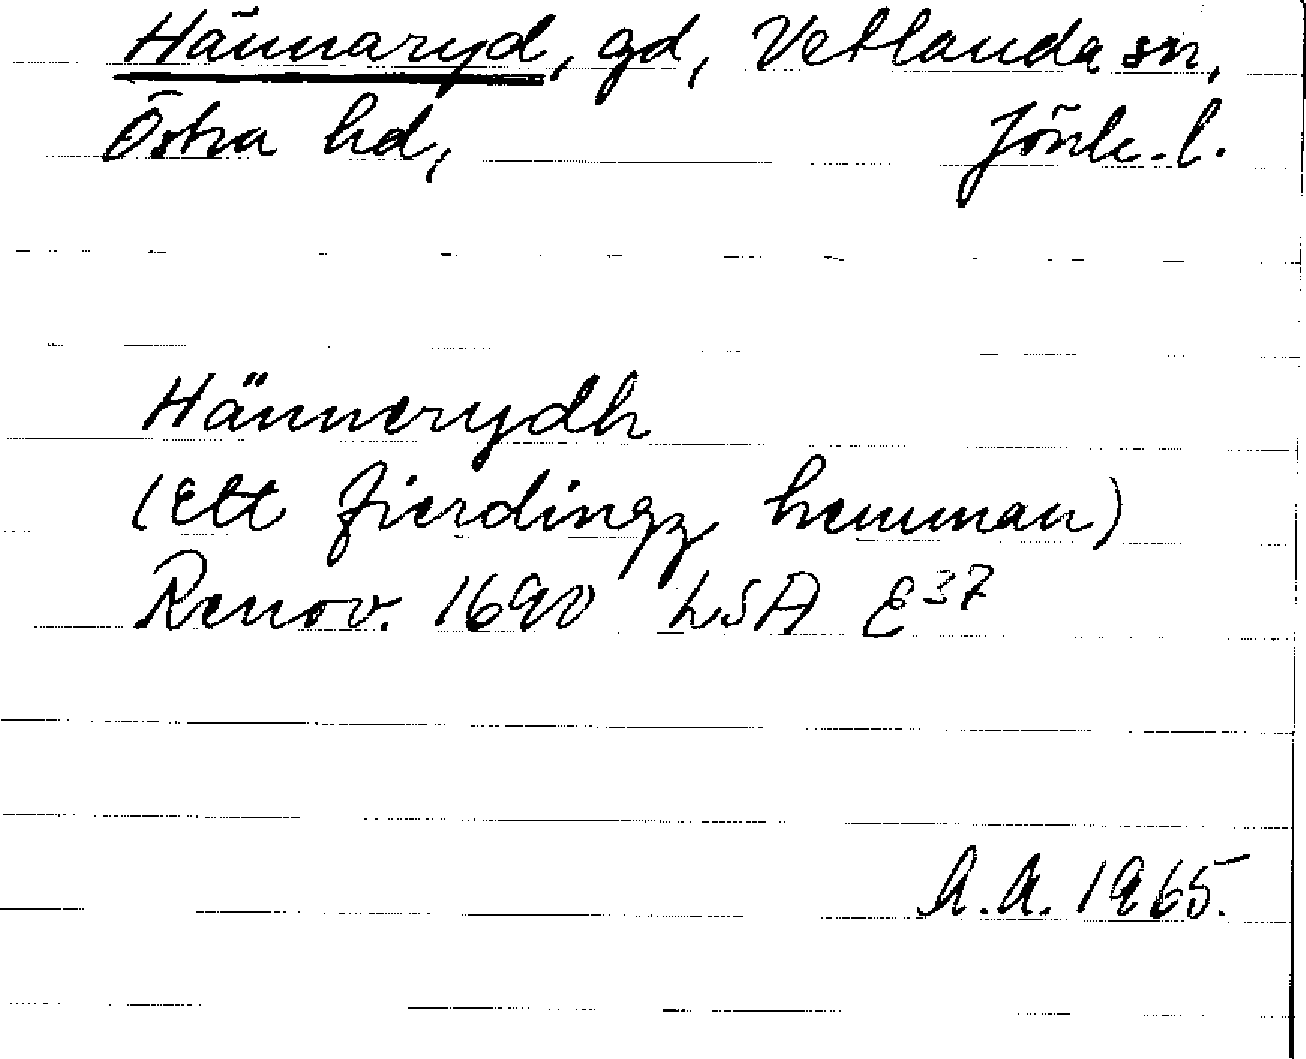 Hännaryd, gd, Vetlanda sn,
Östra hd, Jönk. l.
Hännerydh
(Ett fierdingz hemman)
Renov. 1690 LSA E37
A.A. 1965.